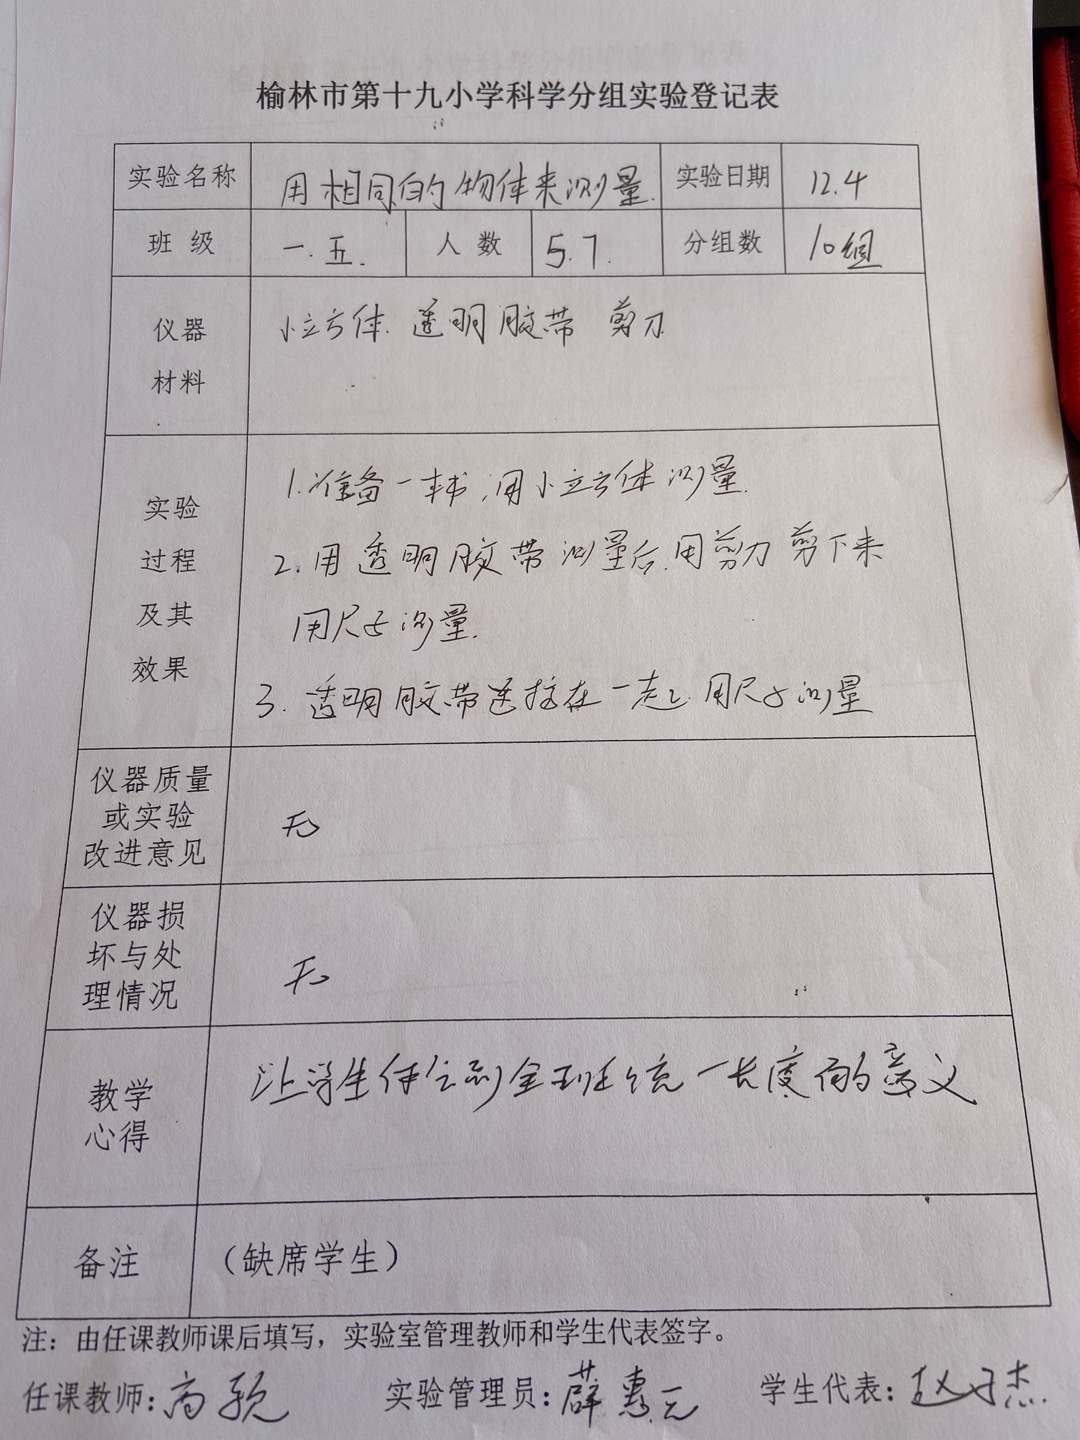 榆林市第十九小学科学分组实验登记表
实验名称 用相同的物体来测量. 实验日期 12.4
班 级 一.五. 人 数 57. 分组数 10组
仪器
材料
小立方体. 透明胶带 剪刀
实验
过程
及其
效果
1.准备一本书,用小立方体测量.
2.用透明胶带测量后,用剪刀剪下来
用尺子测量.
3.透明胶带连接在一起,用尺子测量
仪器质量
或实验
改进意见
无
仪器损
坏与处
理情况
无
教学
心得
让学生体会到全班统一长度的意义
备注
(缺席学生)
注：由任课教师课后填写，实验室管理教师和学生代表签字。
任课教师:高 实验管理员:薛惠元 学生代表:赵子杰.